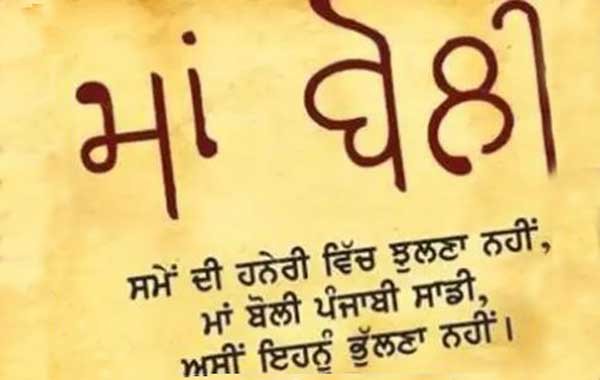 ਮਾਂ ਬੋਲੀ
ਸਮੇਂ ਦੀ ਹਨੇਰੀ ਵਿੱਚ ਝੁਲਣਾ ਨਹੀਂ,
ਮਾਂ ਬੋਲੀ ਪੰਜਾਬੀ ਸਾਡੀ,
ਅਸੀਂ ਇਹਨੂੰ ਭੁੱਲਣਾ ਨਹੀਂ।